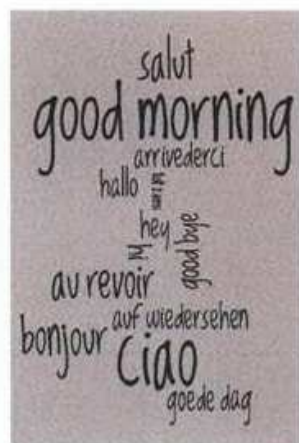 salut
good morning
arrivederci
hallo
hey
hi
good bye
au revoir
auf wiedersehen
bonjour
ciao
goede dag